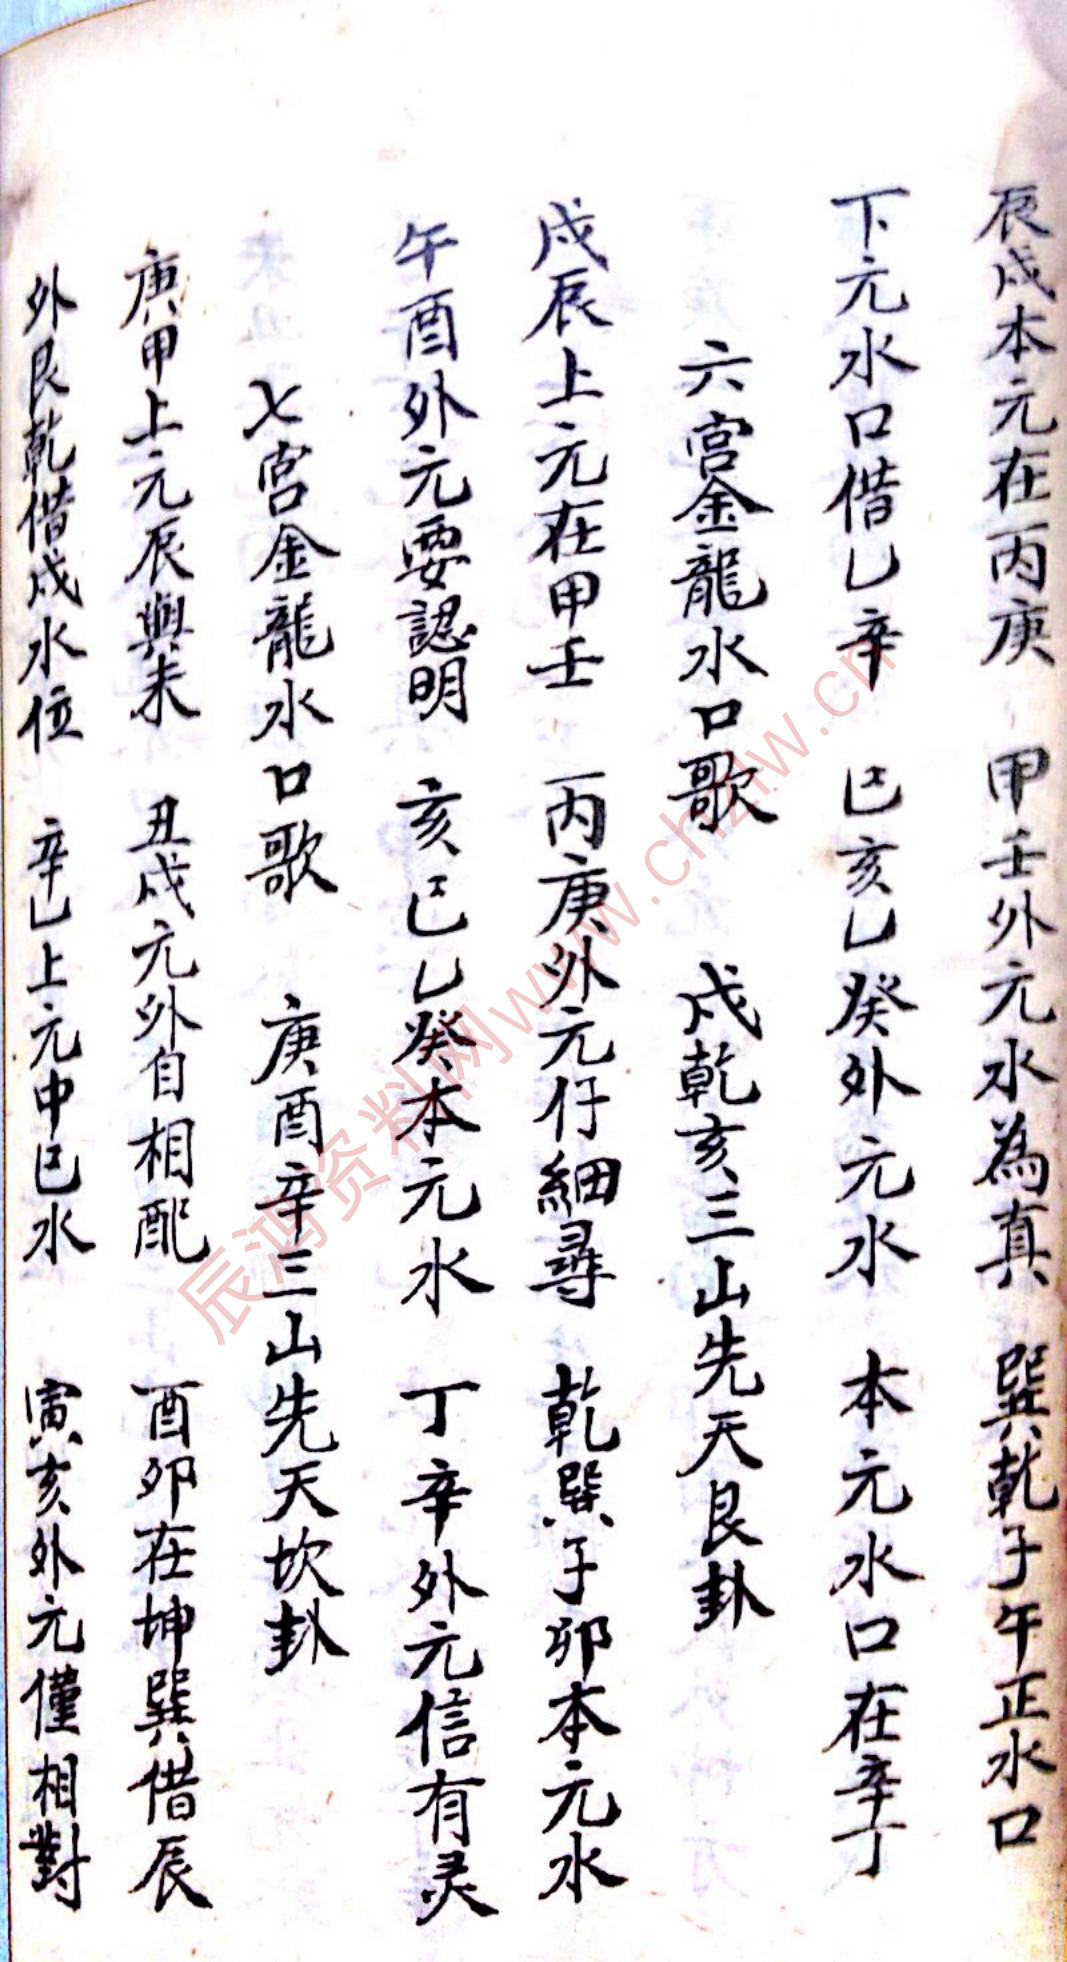 辰戍本元在丙庚　甲壬外元水為真　巽乾子午正水口
下元水口借乚辛　巳亥乚癸外元水　本元水口在辛丁
六宮金龍水口歌　戍乾亥三山先天艮卦
戍辰上元在甲壬　丙庚外元仔細尋　乾巽子卯本元水
午酉外元要認明　亥巳乚癸本元水　丁辛外元信有灵
七宮金龍水口歌　庚酉辛三山先天坎卦
庚甲上元辰與未　丑戍元外自相配　酉卯在坤巽借辰
外艮乾借戍水位　辛乚上元中巳水　寅亥外元僅相對
辰鸿资料网www.chzlw.cn